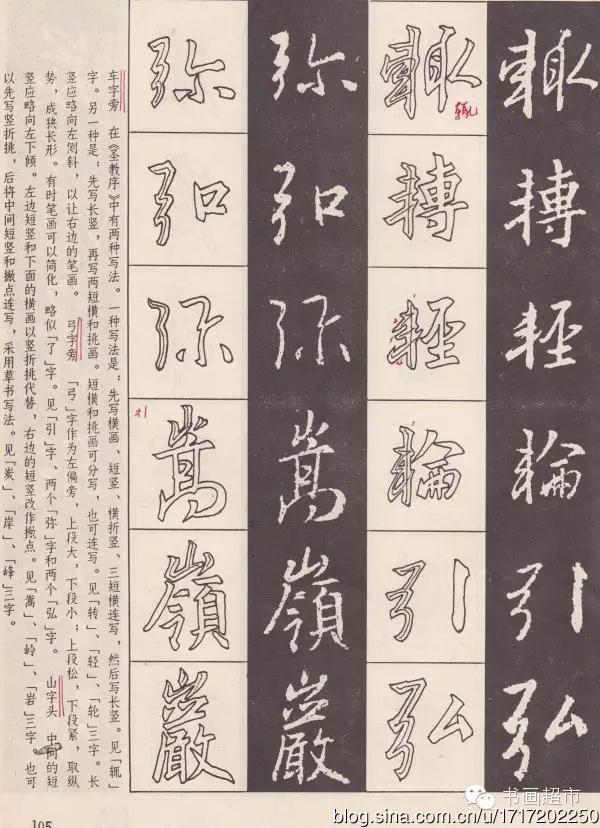 輒轉輕輪引弘
輒轉輕輪引弘
辄
弥弘弥嵩嶺巖
弥弘弥嵩嶺巖
引
车字旁 在《圣教序》中有两种写法。一种写法是：先写横画、短竖、横折竖、三短横连写，然后写长竖。见「辄」
字。另一种是：先写长竖，再写两短横和挑画。短横和挑画可分写，也可连写。见「转」、「轻」、「轮」三字。长
竖应略向左侧斜，以让右边的笔画。 弓字旁 「弓」字作为左偏旁，上段大，下段小；上段松，下段紧，取纵
势，成狭长形。有时笔画可以简化，略似「了」字。见「引」字、两个「弥」字和两个「弘」字。 山字头 中间的短
竖应略向左下倾。左边短竖和下面的横画以竖折挑代替，右边的短竖改作撇点。见「嵩」、「岭」、「岩」三字。也可
以先写竖折挑，后将中间短竖和撇点连写，采用草书写法。见「炭」、「岸」、「峰」三字。
105
书画超市
blog.sina.com.cn/u/1717202250